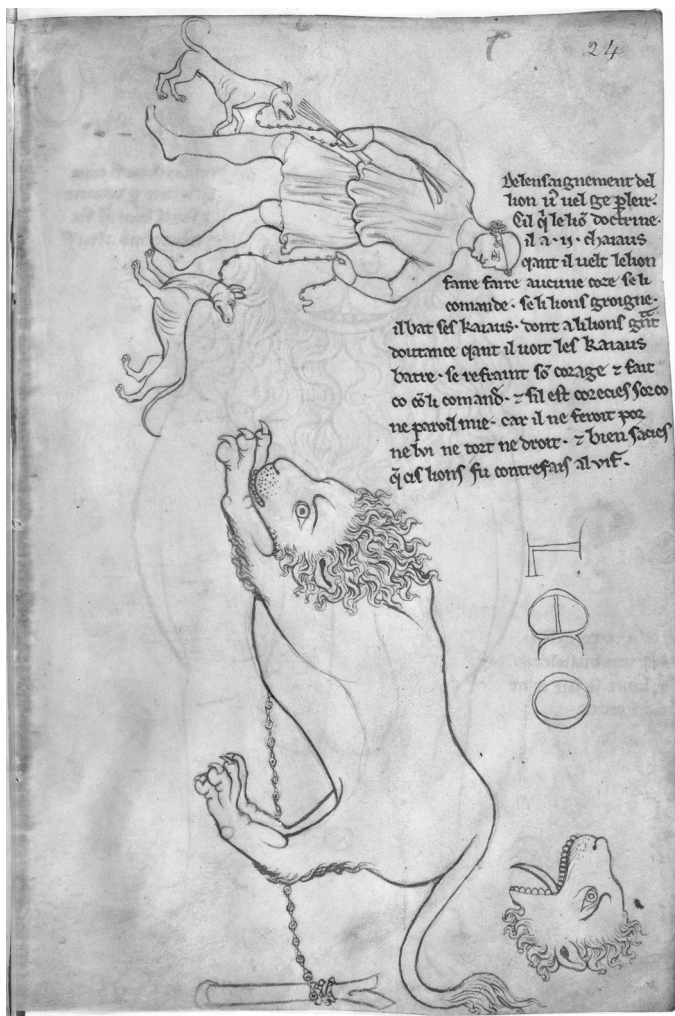 24
De lensaignement del
lion vͦ vel ge p̱leir.
Cil q̄ le liō doctrine.
il a .ıı. chaiaus
qant il velt le lion
faire faire aucune coze se li
comande. se li lions groigne.
il bat ses kaiaus. dont a li lions gͫt
doutance qant il voit les kaiaus
batre. se refraint sō corage ⁊ fait
co cō li comand̄. ⁊ sil est corecies sor co
ne paroil mie. car il ne feroit por
nelvi ne tort ne droit. ⁊ bien sacies
q̄ cis lions fu contrefais al vif.
LEO